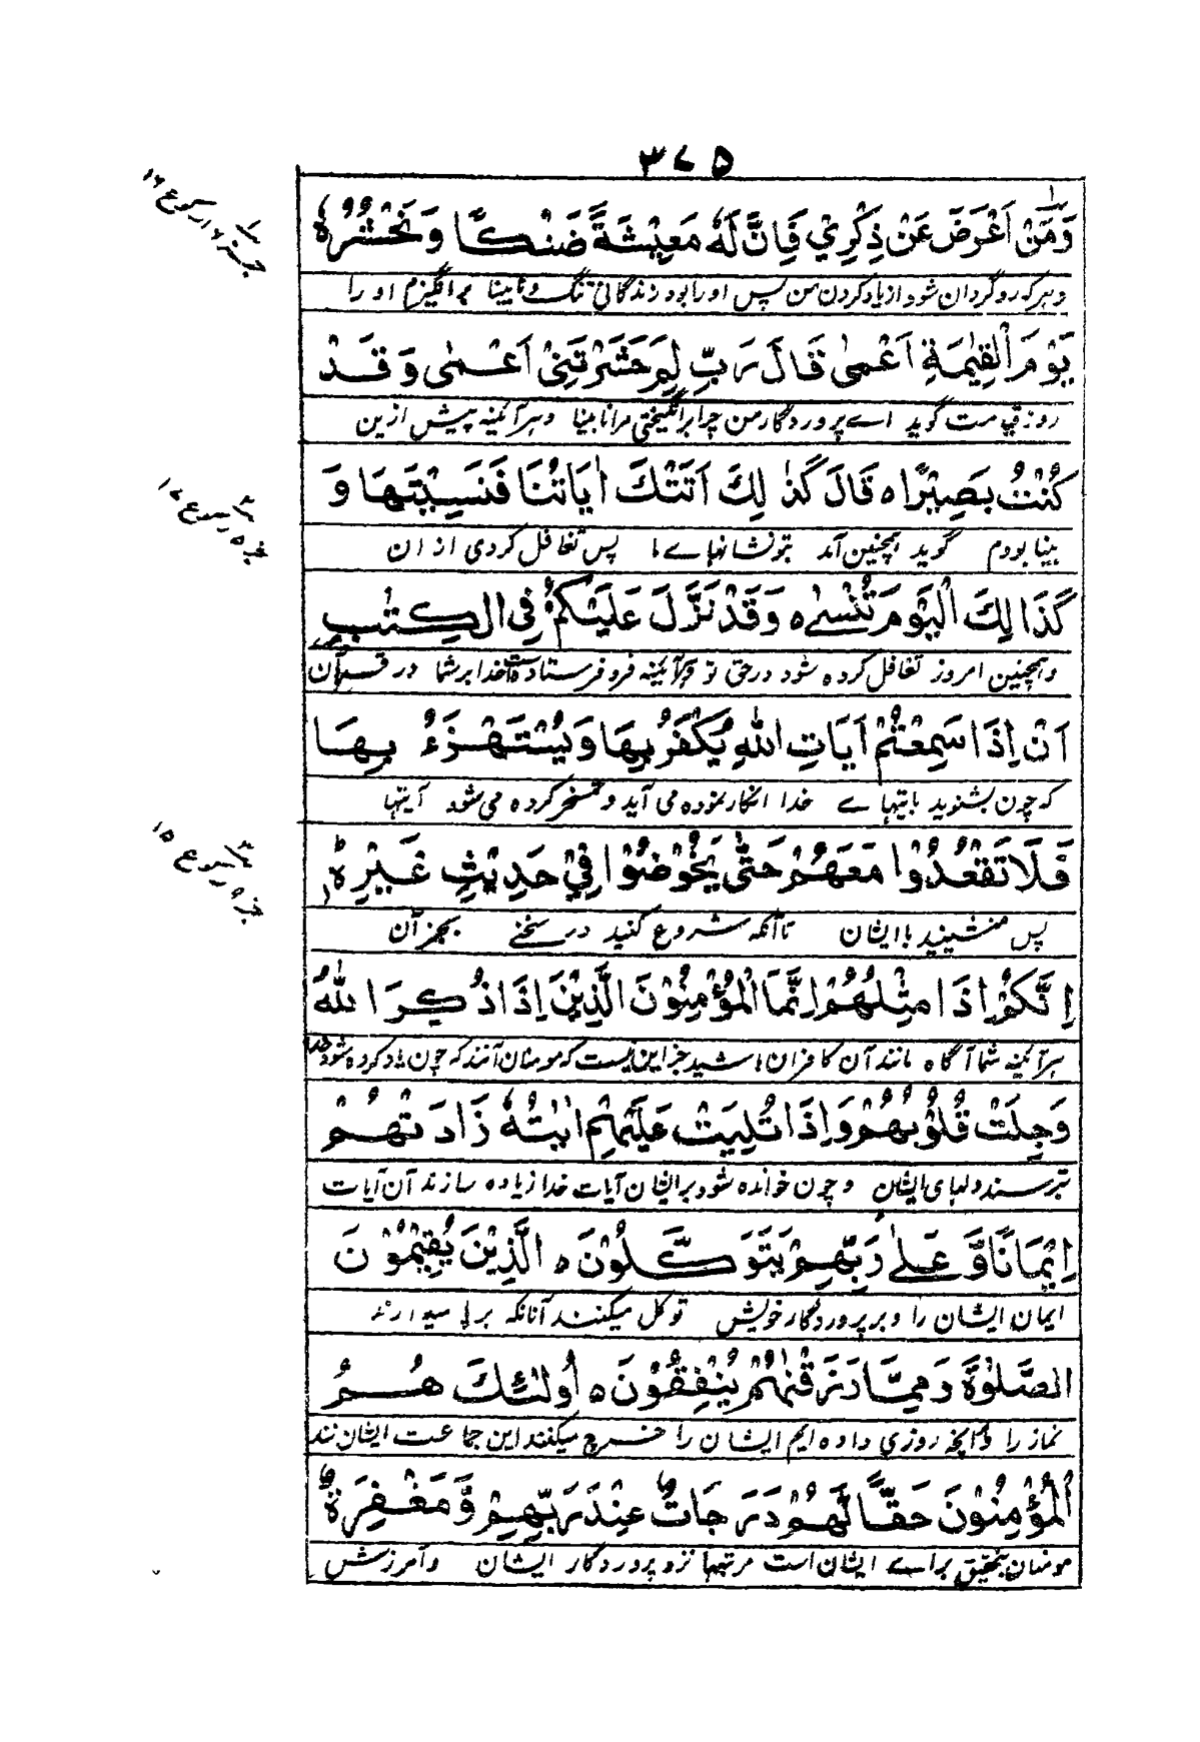 ۳۷۵
وَمَنْ اَعْرَضَ عَنْ ذِكْرِيْ فَاِنَّ لَهٗ مَعِيْشَةً ضَنْكًا وَنَحْشُرُهٗ
وہر کہ رو گردان شود از یاد کردن من پس او را بود زندگانی تنگ و نابینا بر انگیزم او را
جزء ۱۶ رکوع ۱۶
يَوْمَ الْقِيٰمَةِ اَعْمٰى قَالَ رَبِّ لِمَ حَشَرْتَنِيْ اَعْمٰى وَقَدْ
روز قیامت گوید اے پروردگار من چرا بر انگیختی مرا نابینا وہر آئینہ پیش ازین
كُنْتُ بَصِيْرًا ہ قَالَ كَذٰلِكَ اَتَتْكَ اٰيَاتُنَا فَنَسِيْتَهَا وَ
بینا بودم گوید ہمچنین آمد بتو نشانہاے ما پس تغافل کردی از ان
جزء ۵ رکوع ۱۷
كَذَالِكَ الْيَوْمَ تُنْسٰى ہ وَقَدْ نَزَّلَ عَلَيْكُمْ فِي الْكِتٰبِ
وہمچنین امروز تغافل کردہ شود در حق تو وہر آئینہ فرو فرستادہ است خدا بر شما در قرآن
اَنْ اِذَا سَمِعْتُمْ اٰيَاتِ اللّٰهِ يُكْفَرُ بِهَا وَيُسْتَهْزَءُ بِهَا
کہ چون بشنوید بآیتہاے خدا انکار نمودہ می آید و تمسخر کردہ می شود آیتہا
فَلَا تَقْعُدُوْا مَعَهُمْ حَتّٰى يَخُوْضُوْا فِيْ حَدِيْثٍ غَيْرِهٖ
پس منشینید با ایشان تا آنکہ شروع کنید در سخنے بجز آن
جزء ۹ رکوع ۱۵
اِنَّكُمْ اِذًا مِثْلُهُمْ اِنَّمَا الْمُؤْمِنُوْنَ الَّذِيْنَ اِذَا ذُكِرَ اللّٰهُ
ہر آئینہ شما آنگاہ مانند آن کافران باشید جز این نیست کہ مومنان آنند کہ چون یاد کردہ شود خدا
وَجِلَتْ قُلُوْبُهُمْ وَاِذَا تُلِيَتْ عَلَيْهِمْ اٰيٰتُهٗ زَادَتْهُمْ
بترسند دلہای ایشان و چون خواندہ شود بر ایشان آیات خدا زیادہ سازند آن آیات
اِيْمَانًا وَّ عَلٰى رَبِّهِمْ يَتَوَكَّلُوْنَ ہ الَّذِيْنَ يُقِيْمُوْنَ
ایمان ایشان را و بر پروردگار خویش توکل میکنند آنانکہ برپا میدارند
الصَّلٰوةَ وَمِمَّا رَزَقْنٰهُمْ يُنْفِقُوْنَ ہ اُولٰئِكَ هُمُ
نماز را و آنچہ روزی دادہ ایم ایشان را خرچ میکنند این جماعت ایشان نند
الْمُؤْمِنُوْنَ حَقًّا لَهُمْ دَرَجَاتٌ عِنْدَ رَبِّهِمْ وَّمَغْفِرَةٌ
مومنان بتحقیق براے ایشان است مرتبہا نزد پروردگار ایشان و آمرزش